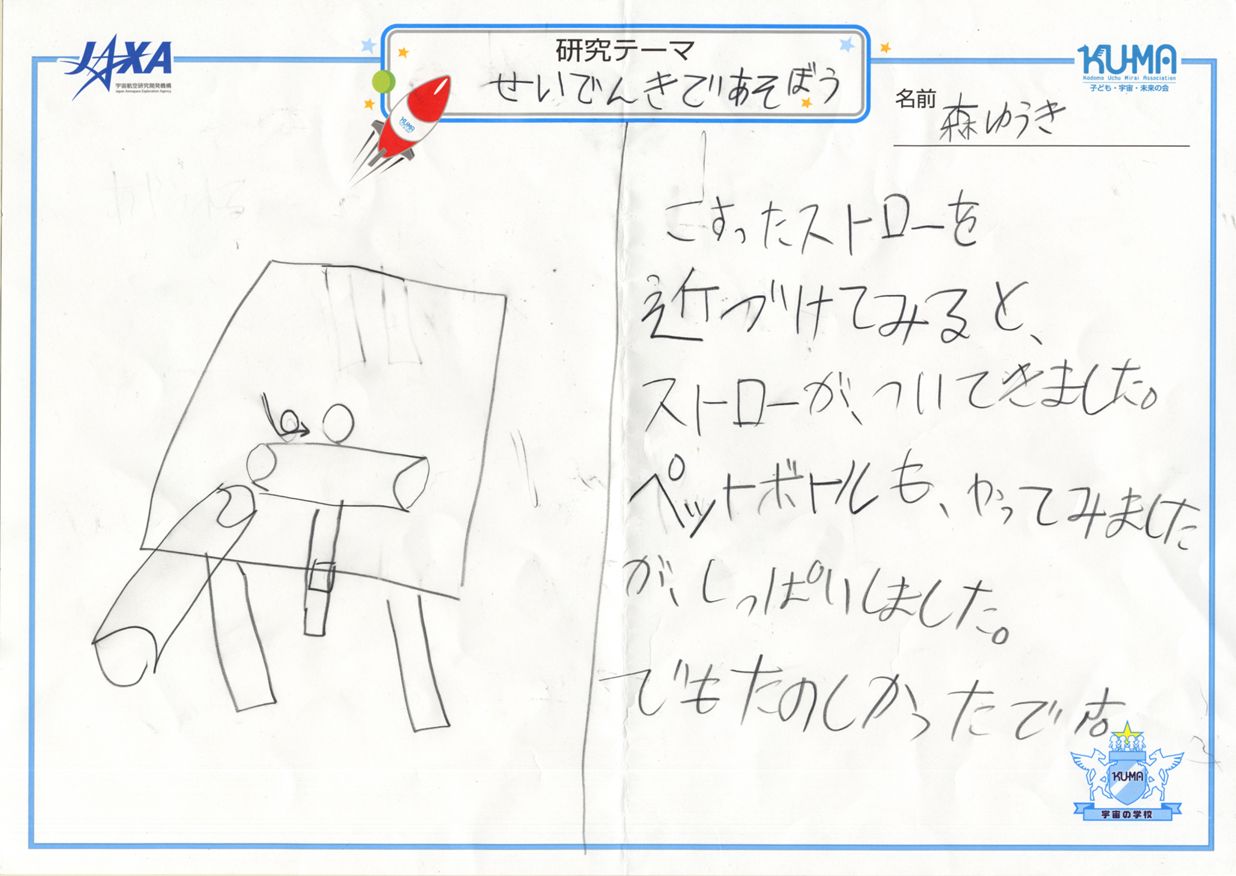 JAXA
宇宙航空研究開発機構
Japan Aerospace Exploration Agency
研究テーマ
せいでんきであそぼう
KUMA
KUMA
Kodomo Uchu Mirai Association
子ども・宇宙・未来の会
名前 森ゆうき
こすったストローを
近づけてみると、
ストローが、ついてきました。
ペットボトルも、やってみました
が、しっぱいしました。
でもたのしかったです。
KUMA
宇宙の学校